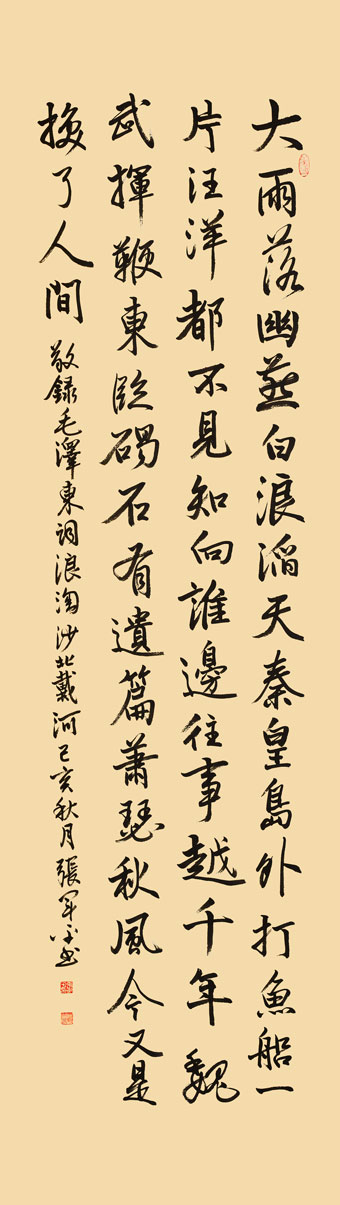 大雨落幽燕白浪滔天秦皇島外打魚船一
片汪洋都不見知向誰邊往事越千年魏
武揮鞭東臨碣石有遺篇蕭瑟秋風今又是
換了人間
敬録毛澤東詞浪淘沙北戴河己亥秋月張軍书